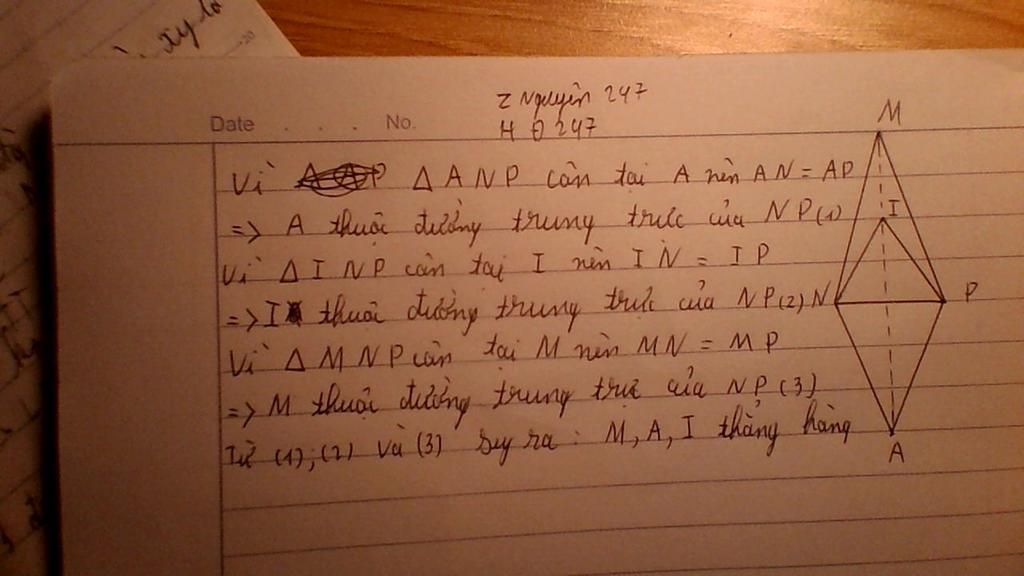 xy là
20
Z Nguyên 247
Date . . . . No.
H Đ 247
Vì Δ ANP cân tại A nên AN = AP
=> A thuộc đường trung trực của NP (1)
Vì Δ INP cân tại I nên IN = IP
=> I thuộc đường trung trực của NP (2)
Vì Δ MNP cân tại M nên MN = MP
=> M thuộc đường trung trực của NP (3)
Từ (1), (2) và (3) suy ra : M, A, I thẳng hàng
M
I
N
P
A